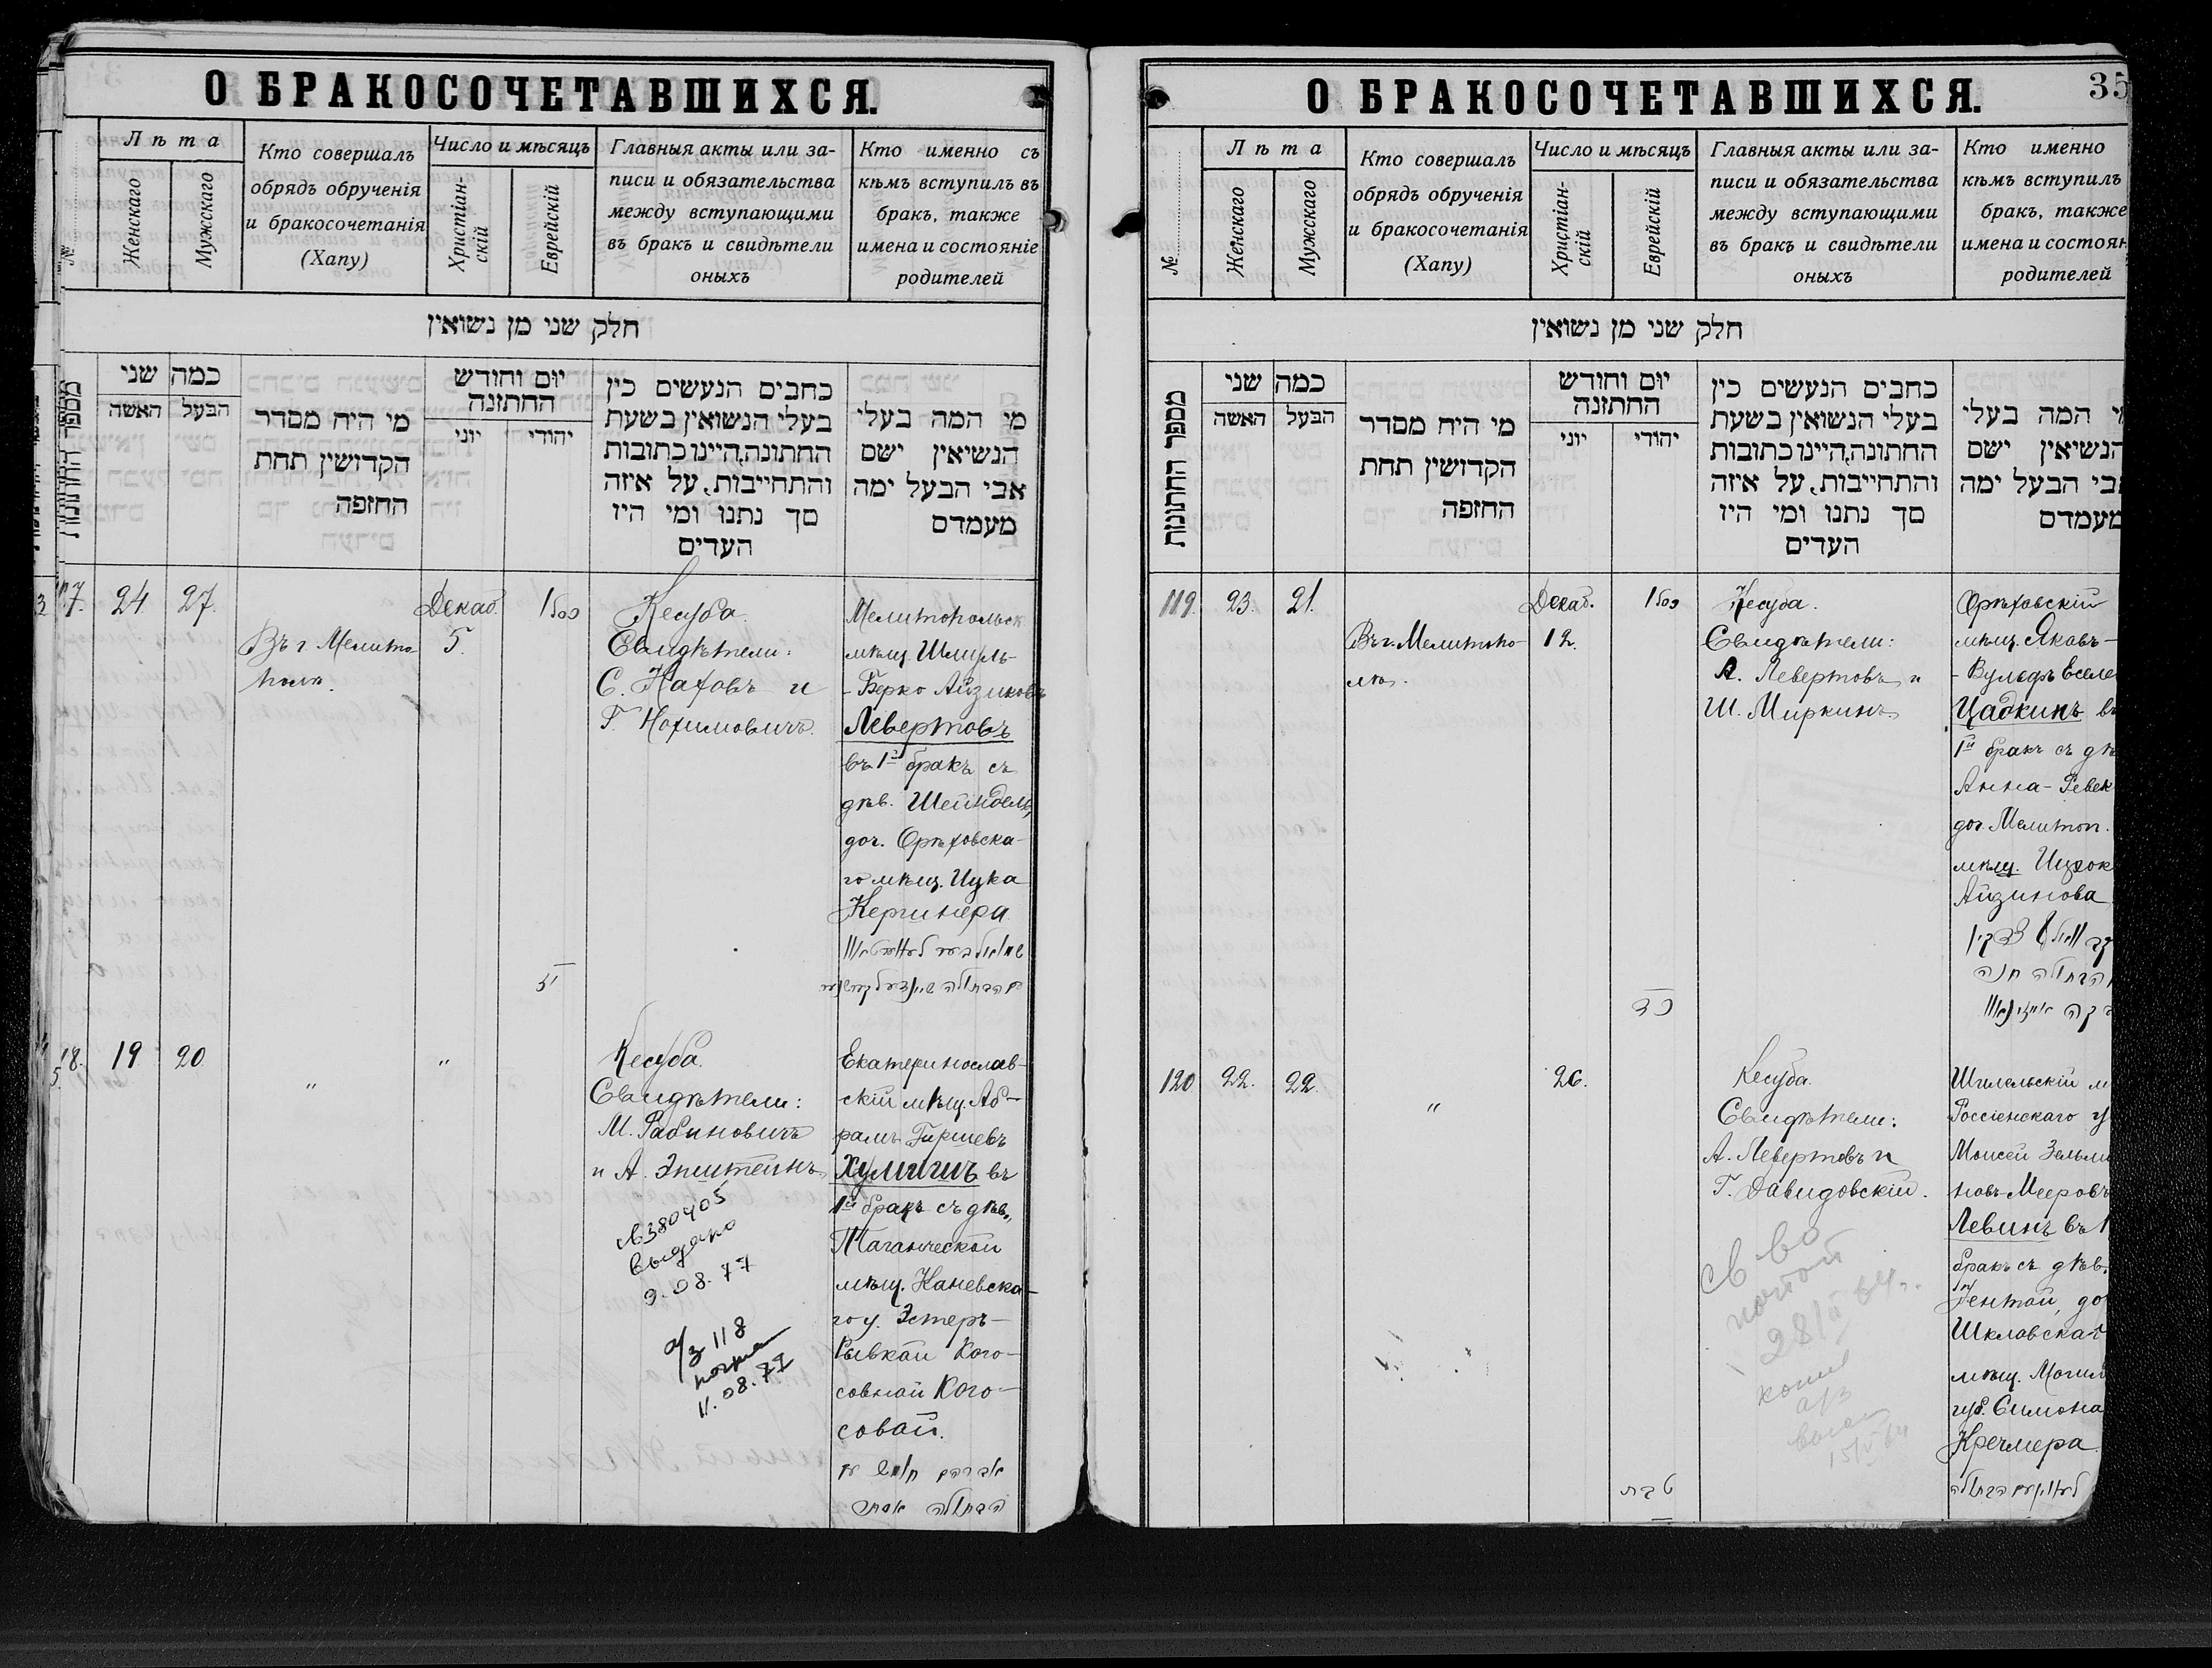 О БРАКОСОЧЕТАВШИХСЯ.
№
Лѣта
Женскаго
Мужскаго
Кто совершалъ
обрядъ обрученія
и бракосочетанія
(Хапу)
Число и мѣсяцъ
Христіан-
скій
Еврейскій
Главныя акты или за-
писи и обязательства
между вступающими
въ бракъ и свидѣтели
оныхъ
Кто именно съ
кѣмъ вступилъ въ
бракъ, также
имена и состояніе
родителей
חלק שני מן נשואין
כמה שני
האשה
הבעל
מי היה מסדר
הקדושין תחת
החופה
יום וחודש
החתונה
יוני
יהודי
כתבים הנעשים בין
בעלי הנשואין בשעת
החתונה, היינו כתובות
והתחייבות, על איזה
סך נתנו ומי היו
העדים
מי המה בעלי
הנשיאין ישם
אבי הבעל ימה
מעמדם
17.
24
27.
Въ г. Мелито
полѣ.
Декаб.
5.
כסלו
יו
Кесуба.
Свидѣтели:
С. Каховъ и
Г. Нохимовичъ.
Мелитопольск
мѣщ. Шмуль-
-Берко Айзиковъ
Левертовъ
въ 1й бракъ съ
дѣв. Шейндель,
доч. Орѣховска-
го мѣщ. Ицка
Кергинера
18.
19
20
"
"
Кесуба.
Свидѣтели:
М. Рабиновичъ
и А. Эпштейнъ
№380405
выдано
9.08.77
а/з 118
11.08.77
Екатеринослав-
скій мѣщ. Аб-
рамъ Гиршевъ
Хулишъ въ
1й бракъ съ дѣв.,
Таганческой
мѣщ. Каневска-
го у. Эстеръ-
Рывкай Кого-
совной Кого-
совай.
О БРАКОСОЧЕТАВШИХСЯ.
35
№
Лѣта
Женскаго
Мужскаго
Кто совершалъ
обрядъ обрученія
и бракосочетанія
(Хапу)
Число и мѣсяцъ
Христіан-
скій
Еврейскій
Главныя акты или за-
писи и обязательства
между вступающими
въ бракъ и свидѣтели
оныхъ
Кто именно
кѣмъ вступилъ
бракъ, также
имена и состоян
родителей
חלק שני מן נשואין
מספר החתונות
כמה שני
האשה
הבעל
מי היה מסדר
הקדושין תחת
החופה
יום וחודש
החתונה
יוני
יהודי
כתבים הנעשים בין
בעלי הנשואין בשעת
החתונה, היינו כתובות
והתחייבות, על איזה
סך נתנו ומי היו
העדים
י המה בעלי
הנשיאין ישם
אבי הבעל ימה
מעמדם
119.
23.
21.
Въ г. Мелитопо-
лѣ.
Декаб.
12.
כסלו
כד
Кесуба.
Свидѣтели:
А. Левертовъ и
Ш. Миркинъ
Орѣховскій
мѣщ. Яковъ-
-Вульфъ Еселе
Цадкинъ въ
1й бракъ съ дѣ
Анна-Ревек
доч. Мелитоп.
мѣщ. Ицхок
Айзинова
120
22.
22.
"
26.
טבת
Кесуба.
Свидѣтели:
А. Левертовъ и
Г. Давидовскій.
св во
почтой
28/II 64г.
копия
а/з
Шилельскій м
Россіенскаго у
Моисей Зельми
новъ-Мееровъ
Левинъ въ 1
бракъ съ дѣв.
Гентой, до
Шкловскаг
мѣщ. Могил
губ. Симона
Кречмера.